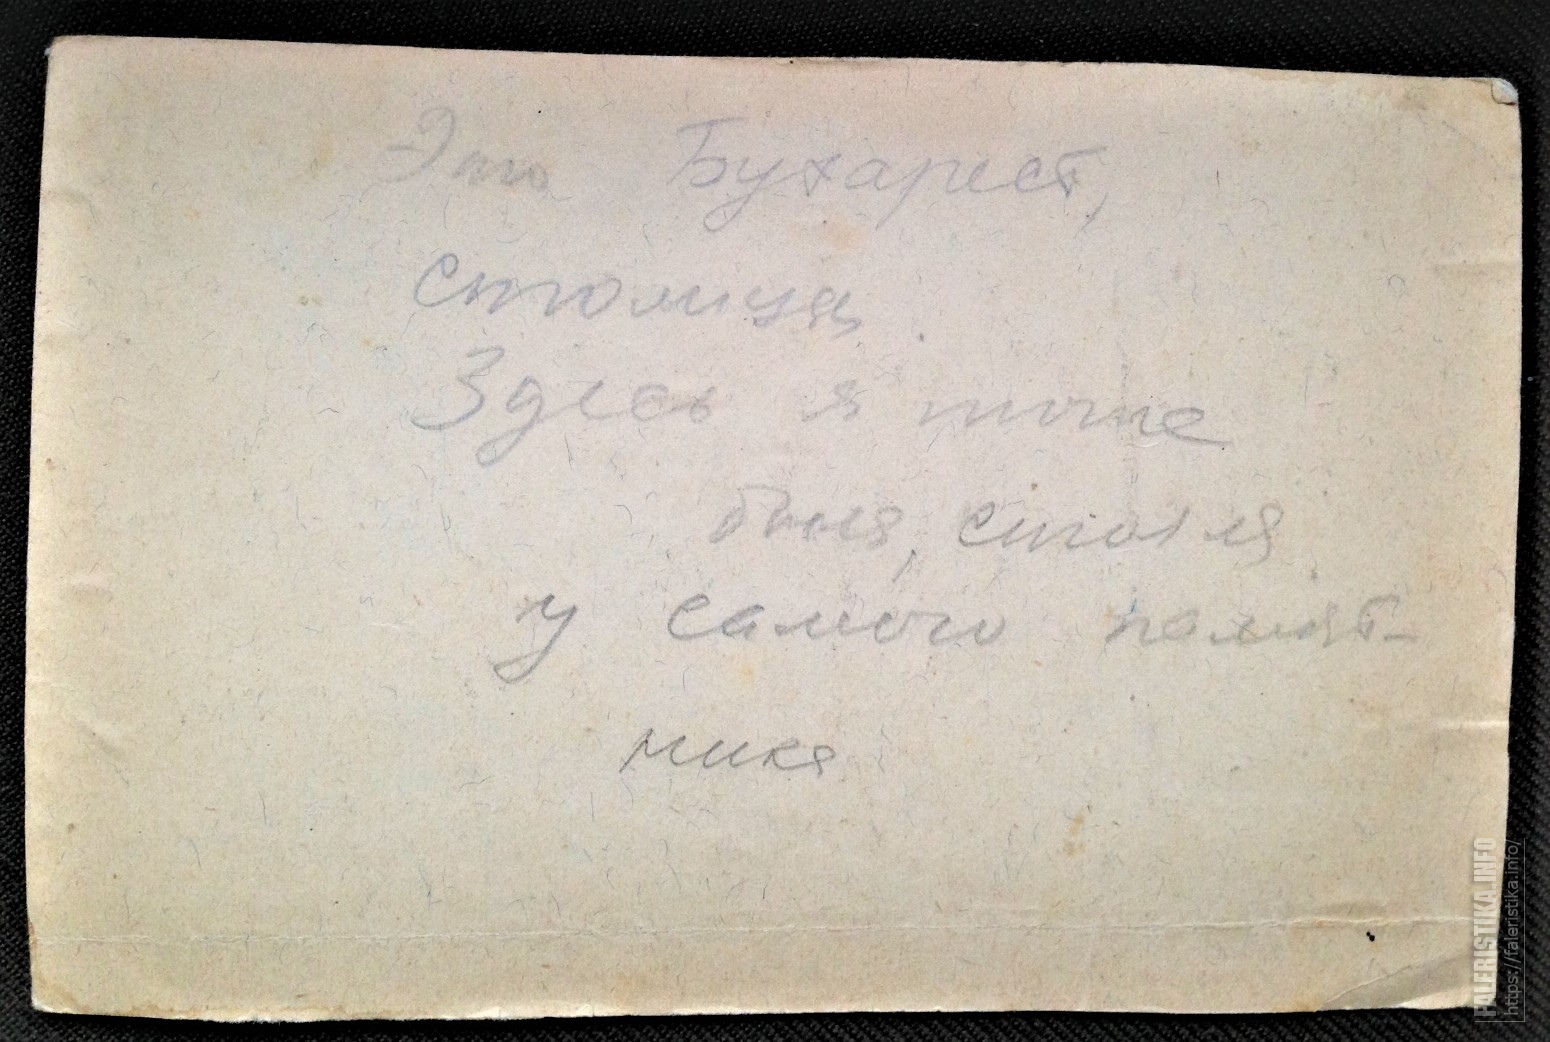 Это Бухарест,
столица.
Здесь я тоже
была, стояла
у самого памят-
ника
FALERISTIKA.INFO
https://faleristika.info/